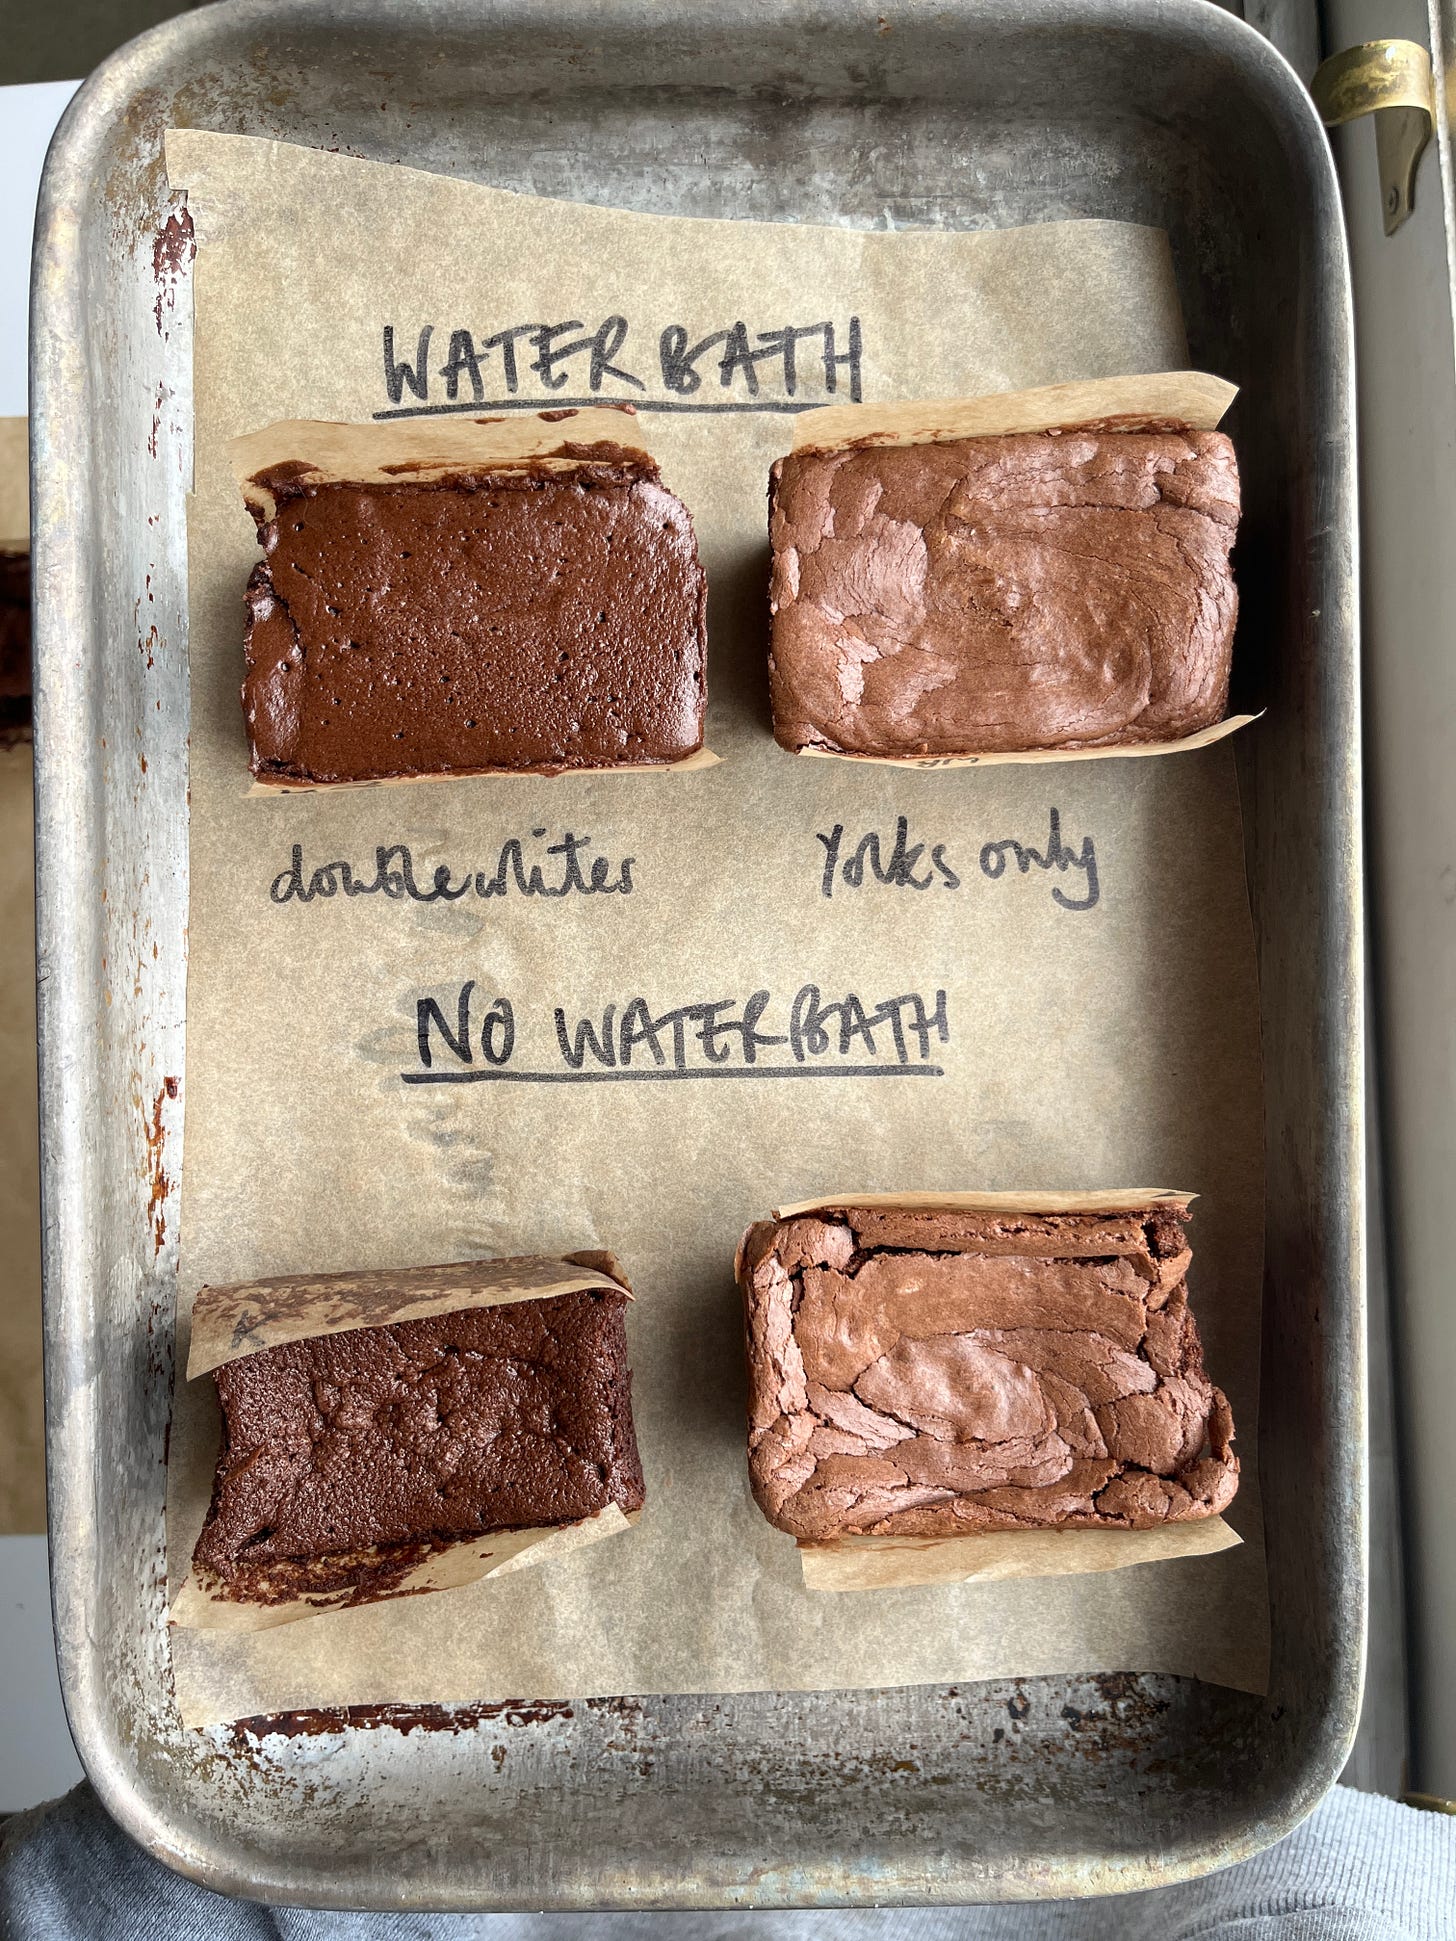 WATER BATH
double whites
Yolks only
NO WATERBATH